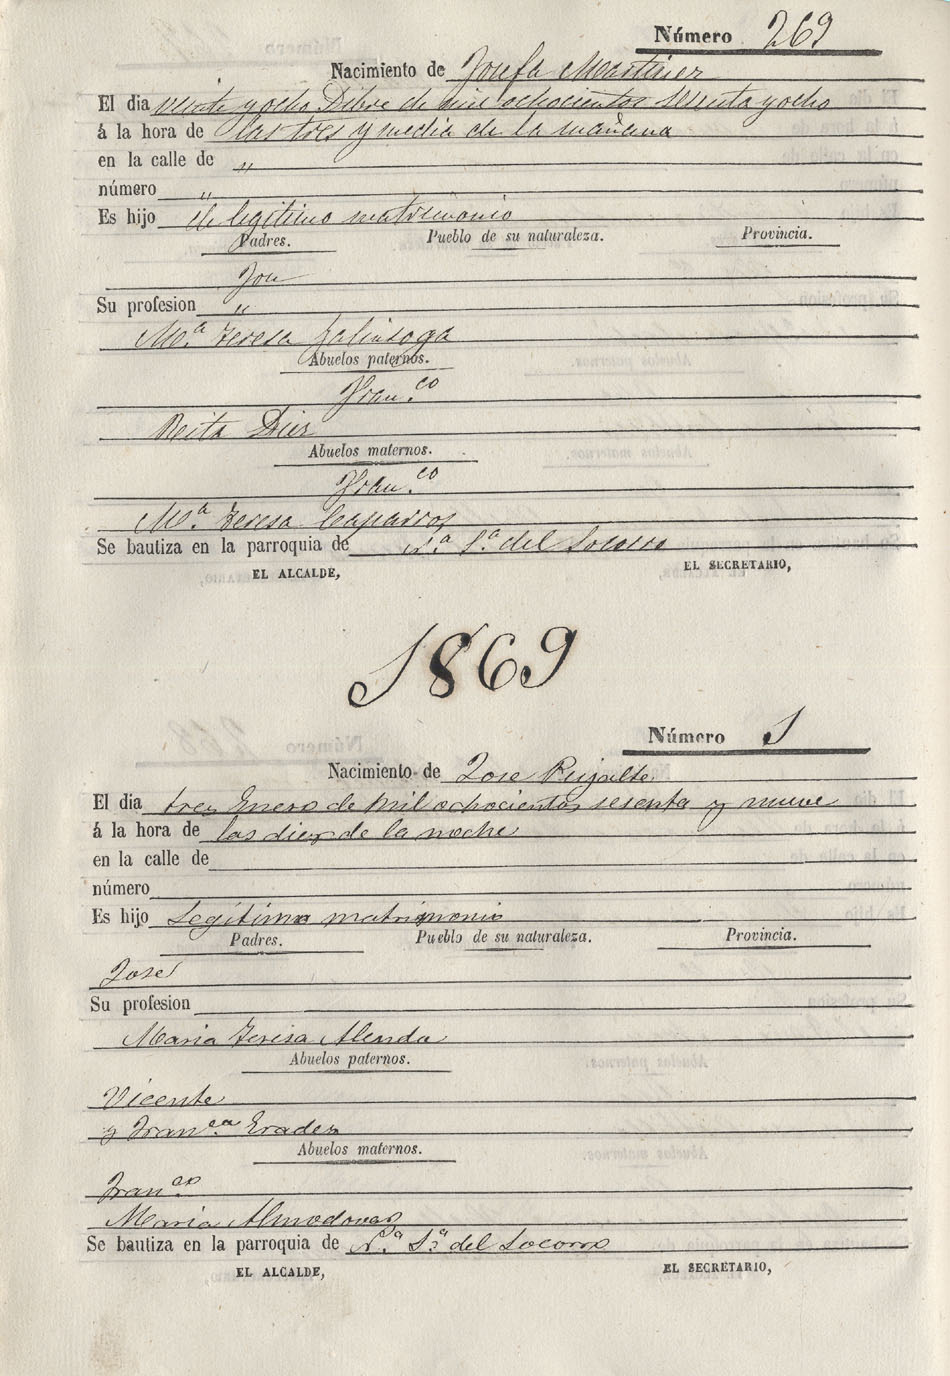 Número 269
Nacimiento de Josefa Martinez
El dia veinte y ocho Dibre de mil ochocientos sesenta y ocho
á la hora de las tres y media de la mañana
en la calle de "
número "
Es hijo de legitimo matrimonio
Padres. Pueblo de su naturaleza. Provincia.
Jose
Su profesion "
Mª Teresa Galinsoga
Abuelos paternos.
Fran.co
Rita Diez
Abuelos maternos.
Fran.co
Mª Teresa Caparros
Se bautiza en la parroquia de N.ª S.ª del Socorro
EL ALCALDE, EL SECRETARIO,
1869
Número 1
Nacimiento de Jose Pujalte
El dia tres Enero de Mil ochocientos sesenta y nueve
á la hora de las diez de la noche
en la calle de
número
Es hijo Legitimo matrimonio
Padres. Pueblo de su naturaleza. Provincia.
Jose
Su profesion
Maria Teresa Alenda
Abuelos paternos.
Vicente
y Fran.ca Erades
Abuelos maternos.
Fran.co
Maria Almodovar
Se bautiza en la parroquia de N.ª S.ª del Socorro
EL ALCALDE, EL SECRETARIO,